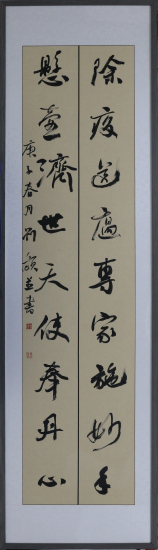 除疫送瘟專家施妙手
懸壺濟世天使奉丹心
庚子春月劉
並書